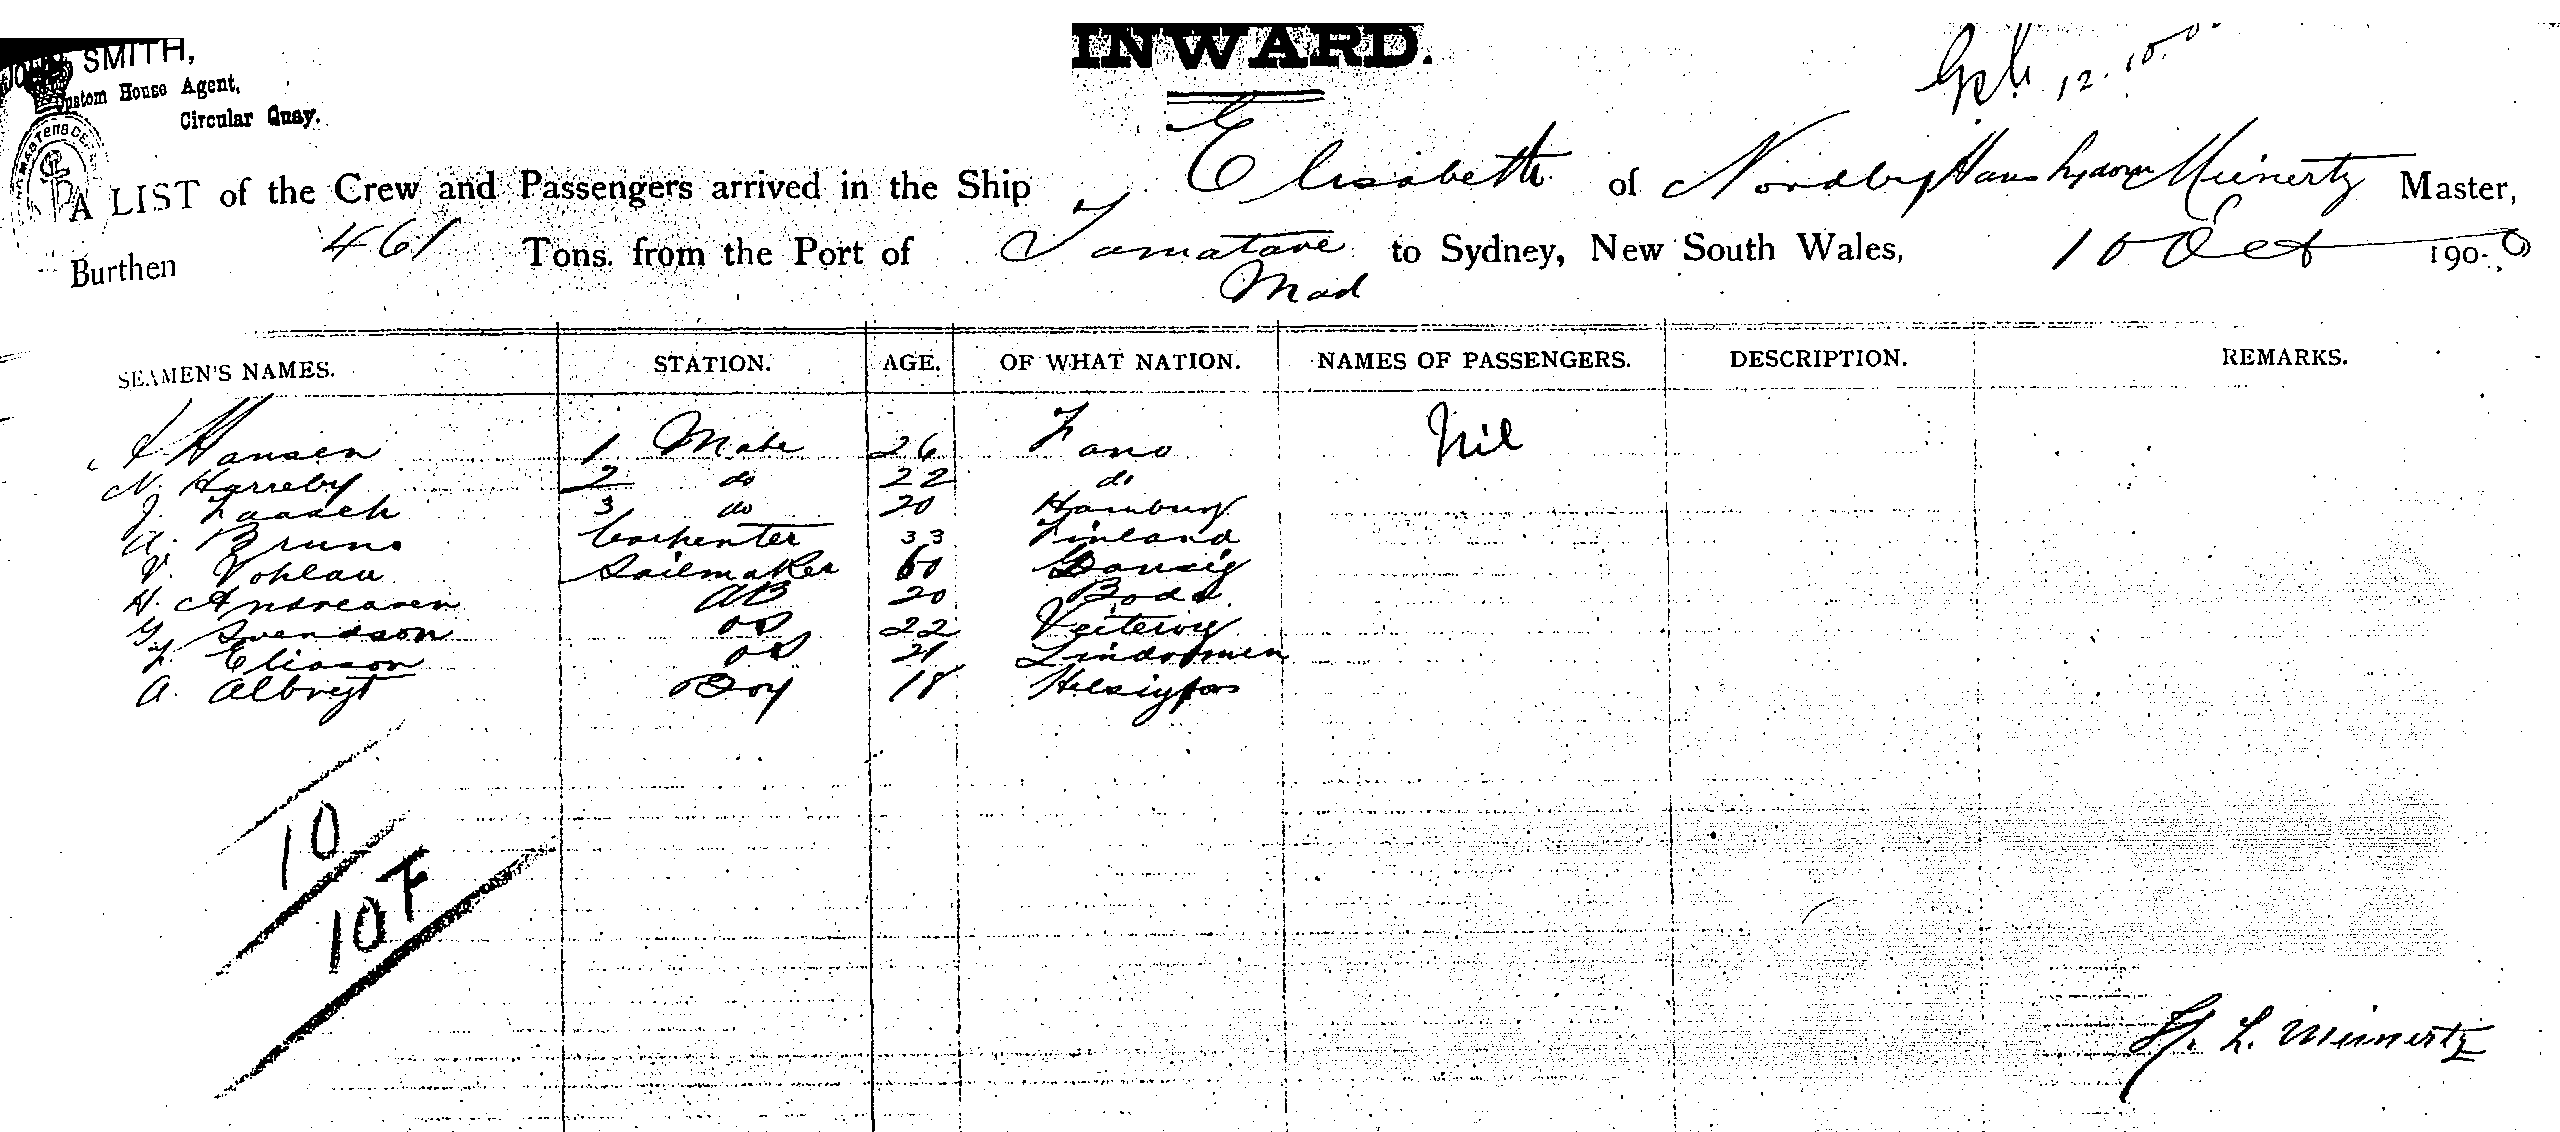 INWARD.
SMITH,
Custom House Agent,
Circular Quay.
12.10.0
A LIST of the Crew and Passengers arrived in the Ship Elisabeth of Nordby Hans Meinertz Master,
Burthen 461 Tons. from the Port of Tamatave to Sydney, New South Wales, 10 Oct 1900
Mad
SEAMEN'S NAMES. STATION. AGE. OF WHAT NATION. NAMES OF PASSENGERS. DESCRIPTION. REMARKS.
Hansen 1 Mate 26 Fano Nil
N. Harreby 2 do 22 do
J. 3 do 20 Hamburg
A. Bruno Carpenter 33 Finland
V. Vohlau Sailmaker 60 Danzig
H. Andreasen AB 20 Bodo
Svendson OS 22 
Eliason OS 21 
A. Albregt Boy 18 Helsigfors
10
10 F
H. L. Meinertz